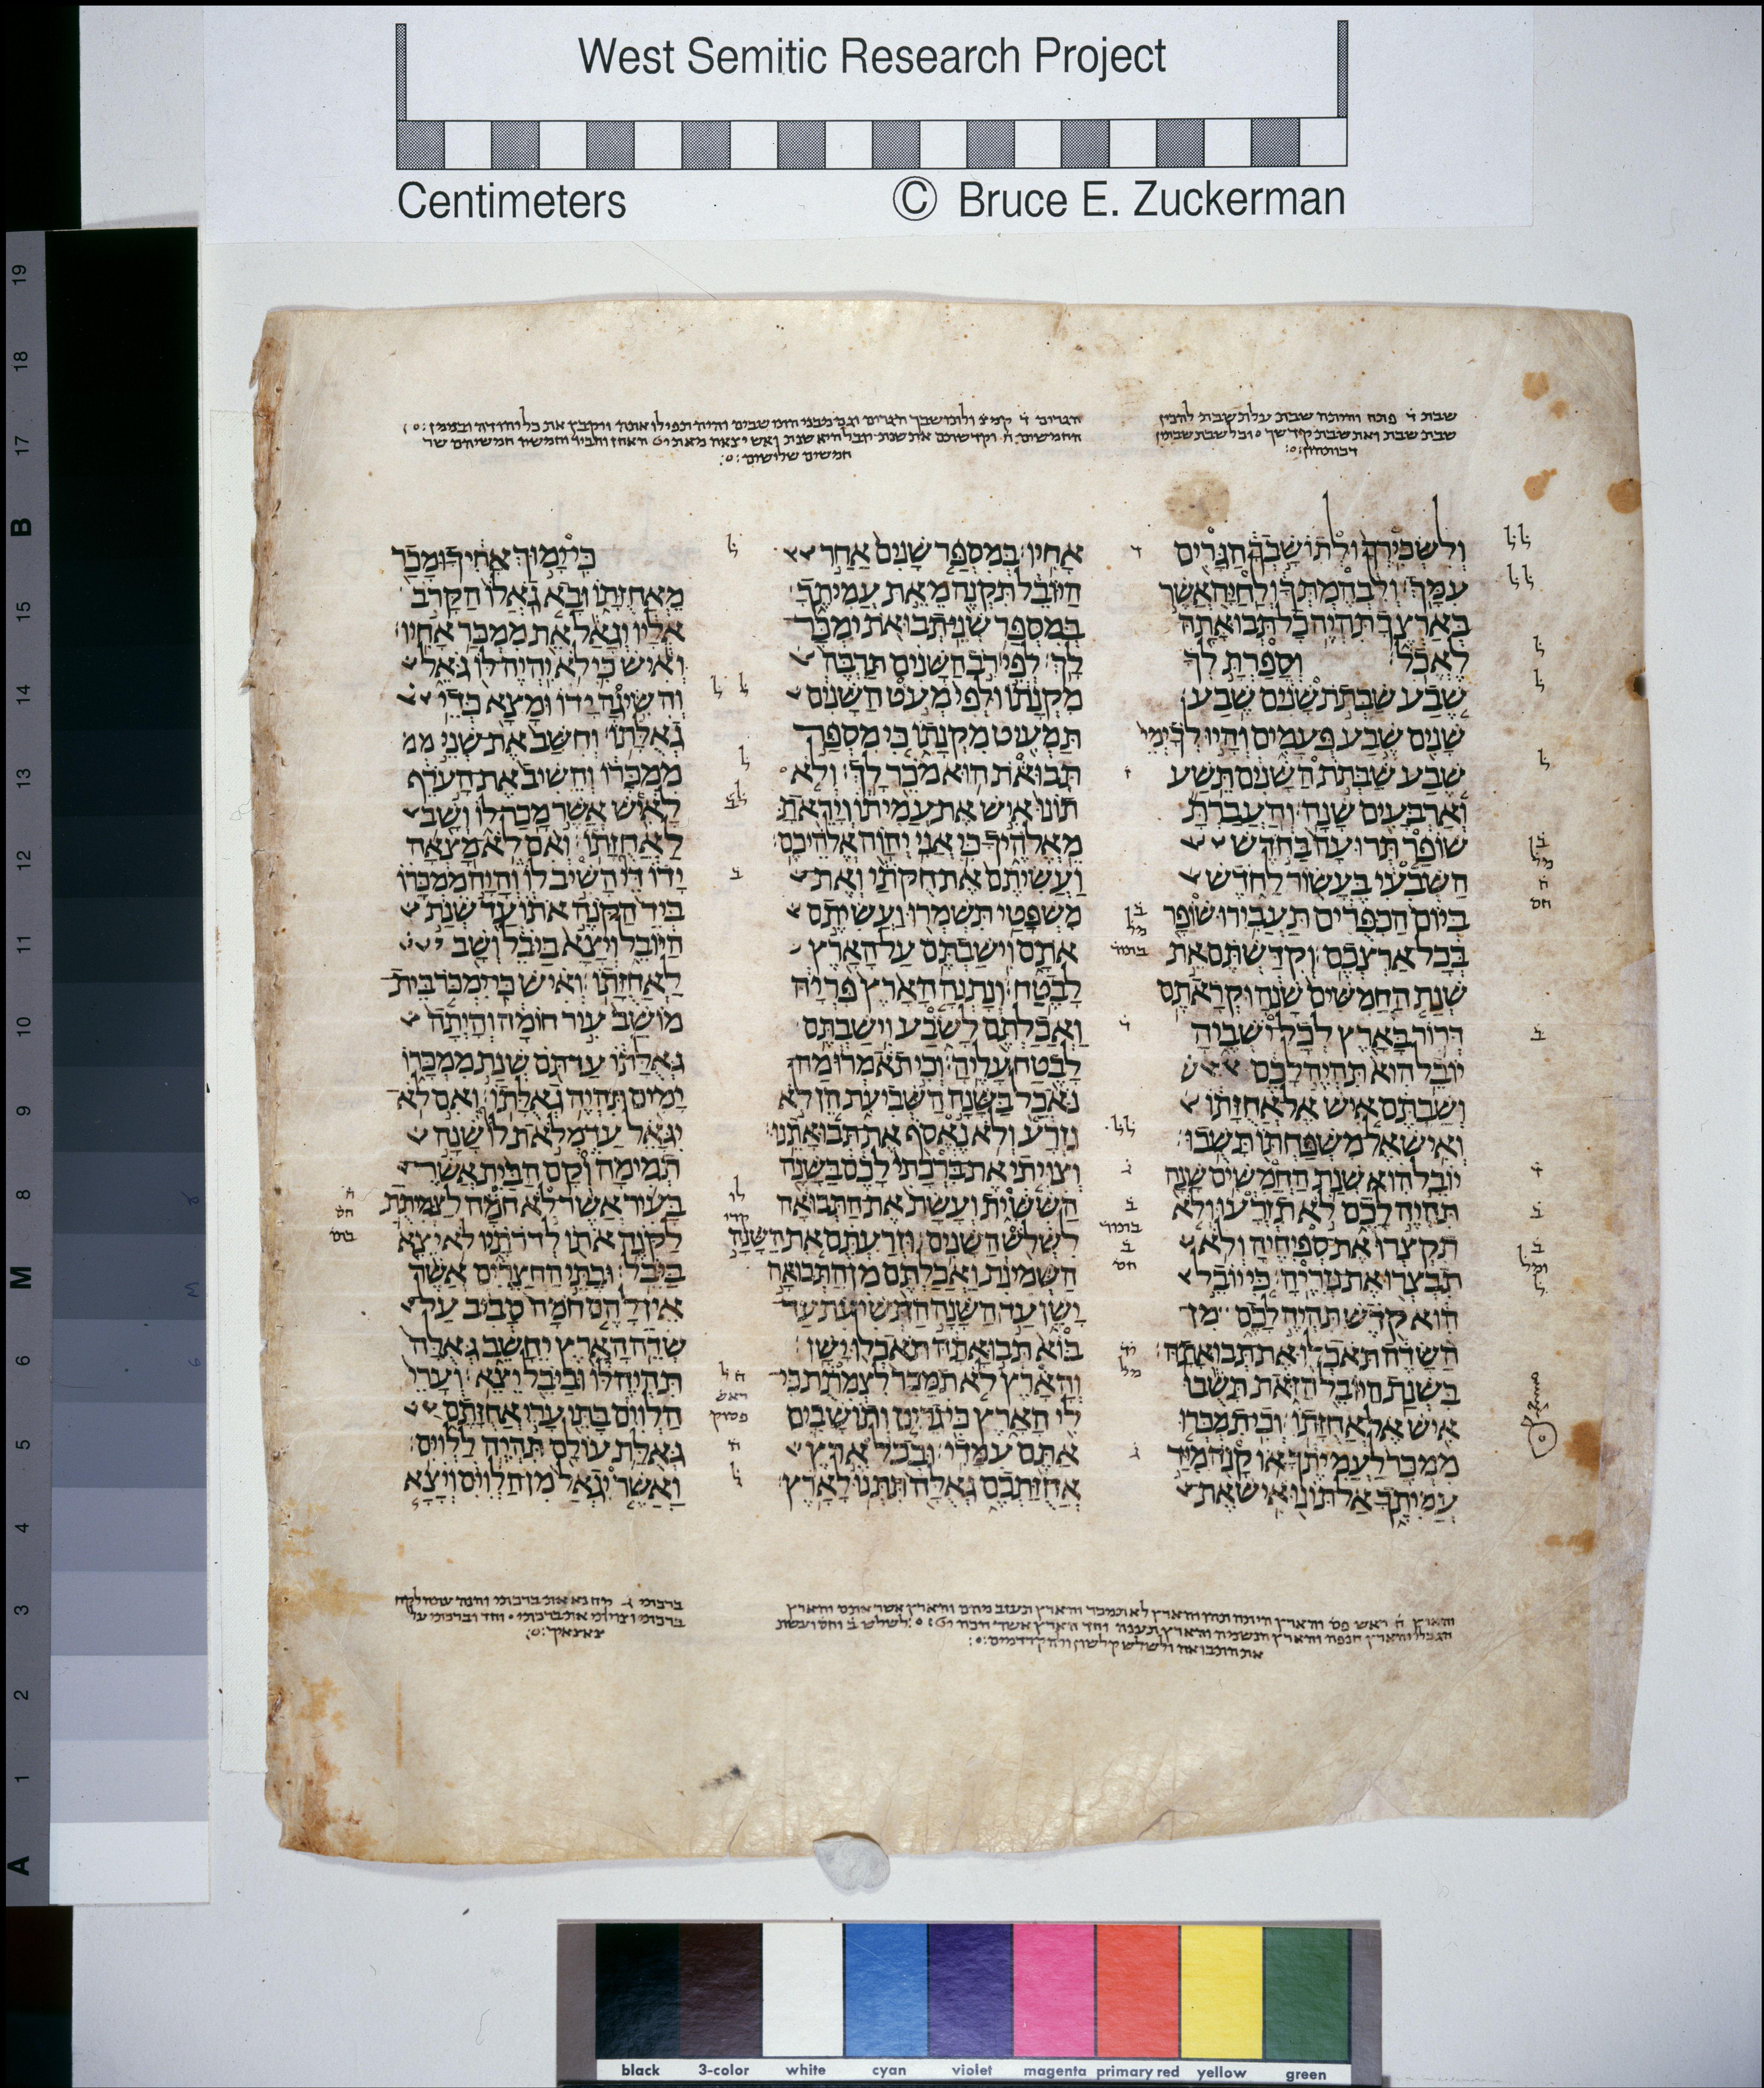 West Semitic Research Project
Centimeters © Bruce E. Zuckerman
וְלִשְׂכִירְךָ וּלְתוֹשָׁבְךָ הַגָּרִים
עִמָּךְ׃ וְלִבְהֶמְתְּךָ וְלַחַיָּה אֲשֶׁר
בְּאַרְצֶךָ תִּהְיֶה כָל תְּבוּאָתָהּ
לֶאֱכֹל׃ וְסָפַרְתָּ לְךָ
שֶׁבַע שַׁבְּתֹת שָׁנִים שֶׁבַע
שָׁנִים שֶׁבַע פְּעָמִים וְהָיוּ לְךָ יְמֵי
שֶׁבַע שַׁבְּתֹת הַשָּׁנִים תֵּשַׁע
וְאַרְבָּעִים שָׁנָה׃ וְהַעֲבַרְתָּ
שׁוֹפַר תְּרוּעָה בַּחֹדֶשׁ
הַשְּׁבִעִי בֶּעָשׂוֹר לַחֹדֶשׁ
בְּיוֹם הַכִּפֻּרִים תַּעֲבִירוּ שׁוֹפָר
בְּכָל אַרְצְכֶם׃ וְקִדַּשְׁתֶּם אֵת
שְׁנַת הַחֲמִשִּׁים שָׁנָה וּקְרָאתֶם
דְּרוֹר בָּאָרֶץ לְכָל יֹשְׁבֶיהָ
יוֹבֵל הִוא תִּהְיֶה לָכֶם
וְשַׁבְתֶּם אִישׁ אֶל אֲחֻזָּתוֹ
וְאִישׁ אֶל מִשְׁפַּחְתּוֹ תָּשֻׁבוּ׃
יוֹבֵל הִוא שְׁנַת הַחֲמִשִּׁים שָׁנָה
תִּהְיֶה לָכֶם לֹא תִזְרָעוּ וְלֹא
תִקְצְרוּ אֶת סְפִיחֶיהָ וְלֹא
תִבְצְרוּ אֶת נְזִרֶיהָ׃ כִּי יוֹבֵל
הִוא קֹדֶשׁ תִּהְיֶה לָכֶם מִן
הַשָּׂדֶה תֹּאכְלוּ אֶת תְּבוּאָתָהּ׃
בִּשְׁנַת הַיּוֹבֵל הַזֹּאת תָּשֻׁבוּ
אִישׁ אֶל אֲחֻזָּתוֹ׃ וְכִי תִמְכְּרוּ
מִמְכָּר לַעֲמִיתֶךָ אוֹ קָנֹה מִיַּד
עֲמִיתֶךָ אַל תּוֹנוּ אִישׁ אֶת
אָחִיו׃ בְּמִסְפַּר שָׁנִים אַחַר
הַיּוֹבֵל תִּקְנֶה מֵאֵת עֲמִיתֶךָ
בְּמִסְפַּר שְׁנֵי תְבוּאֹת יִמְכָּר
לָךְ׃ לְפִי רֹב הַשָּׁנִים תַּרְבֶּה
מִקְנָתוֹ וּלְפִי מְעֹט הַשָּׁנִים
תַּמְעִיט מִקְנָתוֹ כִּי מִסְפַּר
תְּבוּאֹת הוּא מֹכֵר לָךְ׃ וְלֹא
תוֹנוּ אִישׁ אֶת עֲמִיתוֹ וְיָרֵאתָ
מֵאֱלֹהֶיךָ כִּי אֲנִי יְהוָה אֱלֹהֵיכֶם׃
וַעֲשִׂיתֶם אֶת חֻקֹּתַי וְאֶת
מִשְׁפָּטַי תִּשְׁמְרוּ וַעֲשִׂיתֶם
אֹתָם וִישַׁבְתֶּם עַל הָאָרֶץ
לָבֶטַח׃ וְנָתְנָה הָאָרֶץ פִּרְיָהּ
וַאֲכַלְתֶּם לָשֹׂבַע וִישַׁבְתֶּם
לָבֶטַח עָלֶיהָ׃ וְכִי תֹאמְרוּ מַה
נֹּאכַל בַּשָּׁנָה הַשְּׁבִיעִת הֵן לֹא
נִזְרָע וְלֹא נֶאֱסֹף אֶת תְּבוּאָתֵנוּ׃
וְצִוִּיתִי אֶת בִּרְכָתִי לָכֶם בַּשָּׁנָה
הַשִּׁשִּׁית וְעָשָׂת אֶת הַתְּבוּאָה
לִשְׁלֹשׁ הַשָּׁנִים׃ וּזְרַעְתֶּם אֵת הַשָּׁנָה
הַשְּׁמִינִת וַאֲכַלְתֶּם מִן הַתְּבוּאָה
יָשָׁן עַד הַשָּׁנָה הַתְּשִׁיעִת עַד
בּוֹא תְּבוּאָתָהּ תֹּאכְלוּ יָשָׁן׃
וְהָאָרֶץ לֹא תִמָּכֵר לִצְמִתֻת כִּי
לִי הָאָרֶץ כִּי גֵרִים וְתוֹשָׁבִים
אַתֶּם עִמָּדִי׃ וּבְכֹל אֶרֶץ
אֲחֻזַּתְכֶם גְּאֻלָּה תִּתְּנוּ לָאָרֶץ׃
כִּי יָמוּךְ אָחִיךָ וּמָכַר
מֵאֲחֻזָּתוֹ וּבָא גֹאֲלוֹ הַקָּרֹב
אֵלָיו וְגָאַל אֵת מִמְכַּר אָחִיו׃
וְאִישׁ כִּי לֹא יִהְיֶה לּוֹ גֹּאֵל
וְהִשִּׂיגָה יָדוֹ וּמָצָא כְּדֵי
גְאֻלָּתוֹ׃ וְחִשַּׁב אֶת שְׁנֵי ממ
מִמְכָּרוֹ וְהֵשִׁיב אֶת הָעֹדֵף
לָאִישׁ אֲשֶׁר מָכַר לוֹ וְשָׁב
לַאֲחֻזָּתוֹ׃ וְאִם לֹא מָצְאָה
יָדוֹ דֵּי הָשִׁיב לוֹ וְהָיָה מִמְכָּרוֹ
בְּיַד הַקֹּנֶה אֹתוֹ עַד שְׁנַת
הַיּוֹבֵל וְיָצָא בַּיֹּבֵל וְשָׁב
לַאֲחֻזָּתוֹ׃ וְאִישׁ כִּי יִמְכֹּר בֵּית
מוֹשַׁב עִיר חוֹמָה וְהָיְתָה
גְּאֻלָּתוֹ עַד תֹּם שְׁנַת מִמְכָּרוֹ
יָמִים תִּהְיֶה גְאֻלָּתוֹ׃ וְאִם לֹא
יִגָּאֵל עַד מְלֹאת לוֹ שָׁנָה
תְמִימָה וְקָם הַבַּיִת אֲשֶׁר
בָּעִיר אֲשֶׁר לֹא חֹמָה לַצְּמִיתֻת
לַקֹּנֶה אֹתוֹ לְדֹרֹתָיו לֹא יֵצֵא
בַּיֹּבֵל׃ וּבָתֵּי הַחֲצֵרִים אֲשֶׁר
אֵין לָהֶם חֹמָה סָבִיב עַל
שְׂדֵה הָאָרֶץ יֵחָשֵׁב גְּאֻלָּה
תִּהְיֶה לּוֹ וּבַיֹּבֵל יֵצֵא׃ וְעָרֵי
הַלְוִיִּם בָּתֵּי עָרֵי אֲחֻזָּתָם
גְּאֻלַּת עוֹלָם תִּהְיֶה לַלְוִיִּם׃
וַאֲשֶׁר יִגְאַל מִן הַלְוִיִּם וְיָצָא
19
18
17
B
15
14
13
12
11
10
9
8
M
6
5
4
3
2
1
A
black 3-color white cyan violet magenta primary red yellow green